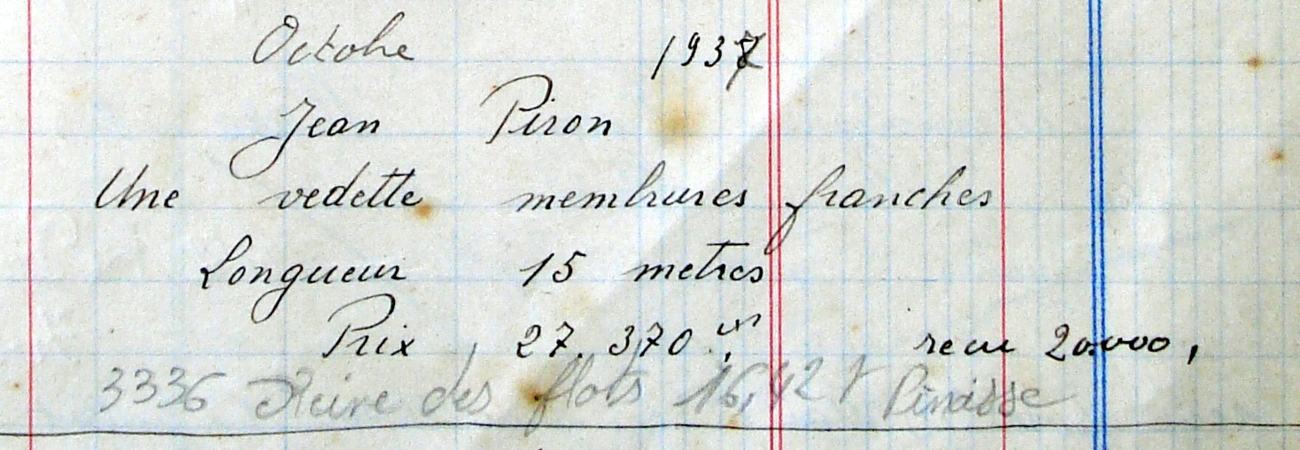 Octobre 1937
Jean Piron
Une vedette membrures franches
Longueur 15 metres
Prix 27.370 recu 20.000,
3336 Reine des flots 16,42 T Pinasse